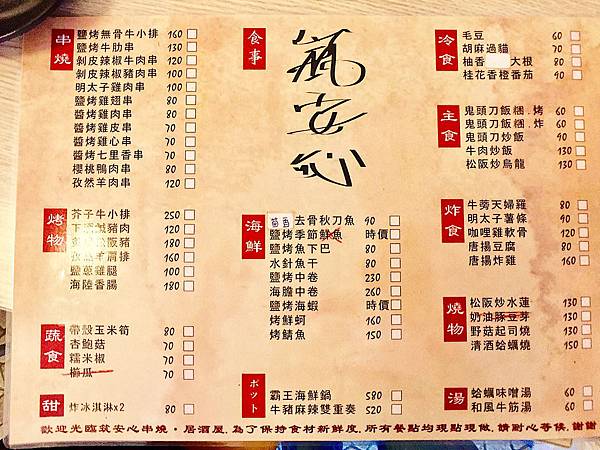 串燒
鹽烤無骨牛小排 160
鹽烤牛肋串 130
剝皮辣椒牛肉串 120
剝皮辣椒豬肉串 100
明太子雞肉串 100
鹽烤雞翅串 80
醬烤雞肉串 80
醬烤雞皮串 70
醬烤雞心串 70
醬烤七里香串 80
櫻桃鴨肉串 70
孜然羊肉串 120
烤物
芥子牛小排 250
鹹豬肉 120
阪豬 180
肩排 160
鹽蔥雞腿 100
海陸香腸 180
蔬食
帶殼玉米筍 80
杏鮑菇 70
糯米椒 70
櫛瓜 70
甜
炸冰淇淋x2 80
食事
筑安心
海鮮
去骨秋刀魚 90
鹽烤季節鮮魚 時價
鹽烤魚下巴 80
水針魚干 80
鹽烤中卷 230
海膽中卷 260
鹽烤海蝦 時價
烤鮮蚵 160
烤鯖魚 150
ポット
霸王海鮮鍋 580
牛豬麻辣雙重奏 520
冷食
毛豆 60
胡麻過貓 70
柚香 大根 80
桂花香橙番茄 90
主食
鬼頭刀飯糰.烤 60
鬼頭刀飯糰.炸 60
鬼頭刀炒飯 130
牛肉炒飯 130
松阪炒烏龍 150
炸食
牛蒡天婦羅 80
明太子薯條 90
咖哩雞軟骨 120
唐揚豆腐 80
唐揚炸雞 160
燒物
松阪炒水蓮 130
奶油豚豆芽 130
野菇起司燒 130
清酒蛤蠣燒 150
湯
蛤蠣味噌湯 60
和風牛筋湯 80
歡迎光臨筑安心串燒・居酒屋.為了保持食材新鮮度.所有餐點均現點現做.請耐心等候.謝謝